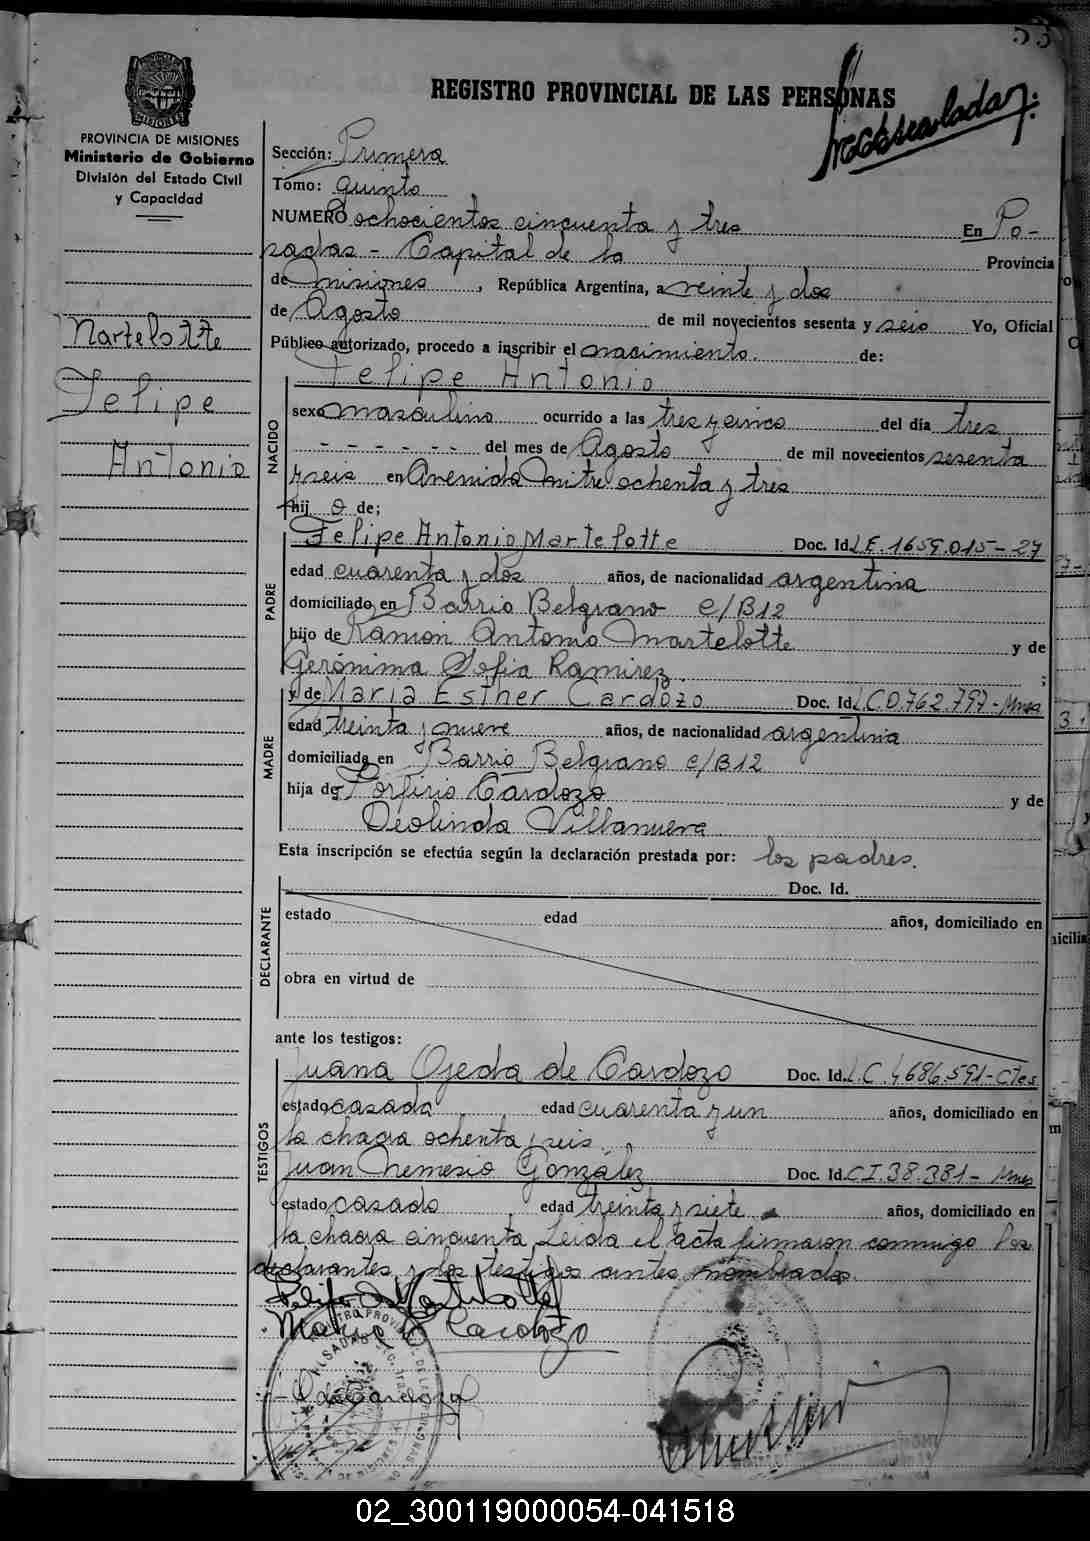 53
REGISTRO PROVINCIAL DE LAS PERSONAS
MISIONES
PROVINCIA DE MISIONES
Ministerio de Gobierno
División del Estado Civil
y Capacidad
Martelotte
Felipe
Antonio
Sección: Primera
Tomo: quinto
NUMERO ochocientos cincuenta y tres En Po-
sadas - Capital de la Provincia
de Misiones, República Argentina, a veinte y dos
de Agosto de mil novecientos sesenta y seis Yo, Oficial
Público autorizado, procedo a inscribir el nacimiento de:
Felipe Antonio
NACIDO
sexo masculino ocurrido a las tres y cinco del día tres
- - - - - - del mes de Agosto de mil novecientos sesenta
y seis en Avenida Mitre ochenta y tres
hij o de;
PADRE
Felipe Antonio Martelotte Doc. Id. L.E. 1659.015-27
edad cuarenta y dos años, de nacionalidad argentina
domiciliado en Barrio Belgrano C/B12
hijo de Ramón Antonio Martelotte y de
Gerónima Sofia Ramirez. ;
MADRE
y de Maria Esther Cardozo Doc. Id. L.C 0.762.797-Mnes
edad treinta y nueve años, de nacionalidad argentina
domiciliada en Barrio Belgrano C/B12
hija de Porfirio Cardozo y de
Deolinda Villanueva
Esta inscripción se efectúa según la declaración prestada por: los padres.
DECLARANTE
Doc. Id.
estado edad años, domiciliado en
obra en virtud de
ante los testigos:
TESTIGOS
Juana Ojeda de Cardozo Doc. Id. L.C. 4686.591-Ctes
estado casada edad cuarenta y un años, domiciliado en
la chacra ochenta y seis.
Juan Nemesio González Doc. Id. C.I. 38.381- Mnes
estado casado edad treinta y siete años, domiciliado en
la chacra cincuenta. Leida el acta firmaron conmigo los
declarantes y los testigos antes nombrados.
Maria E Cardozo
02_300119000054-041518